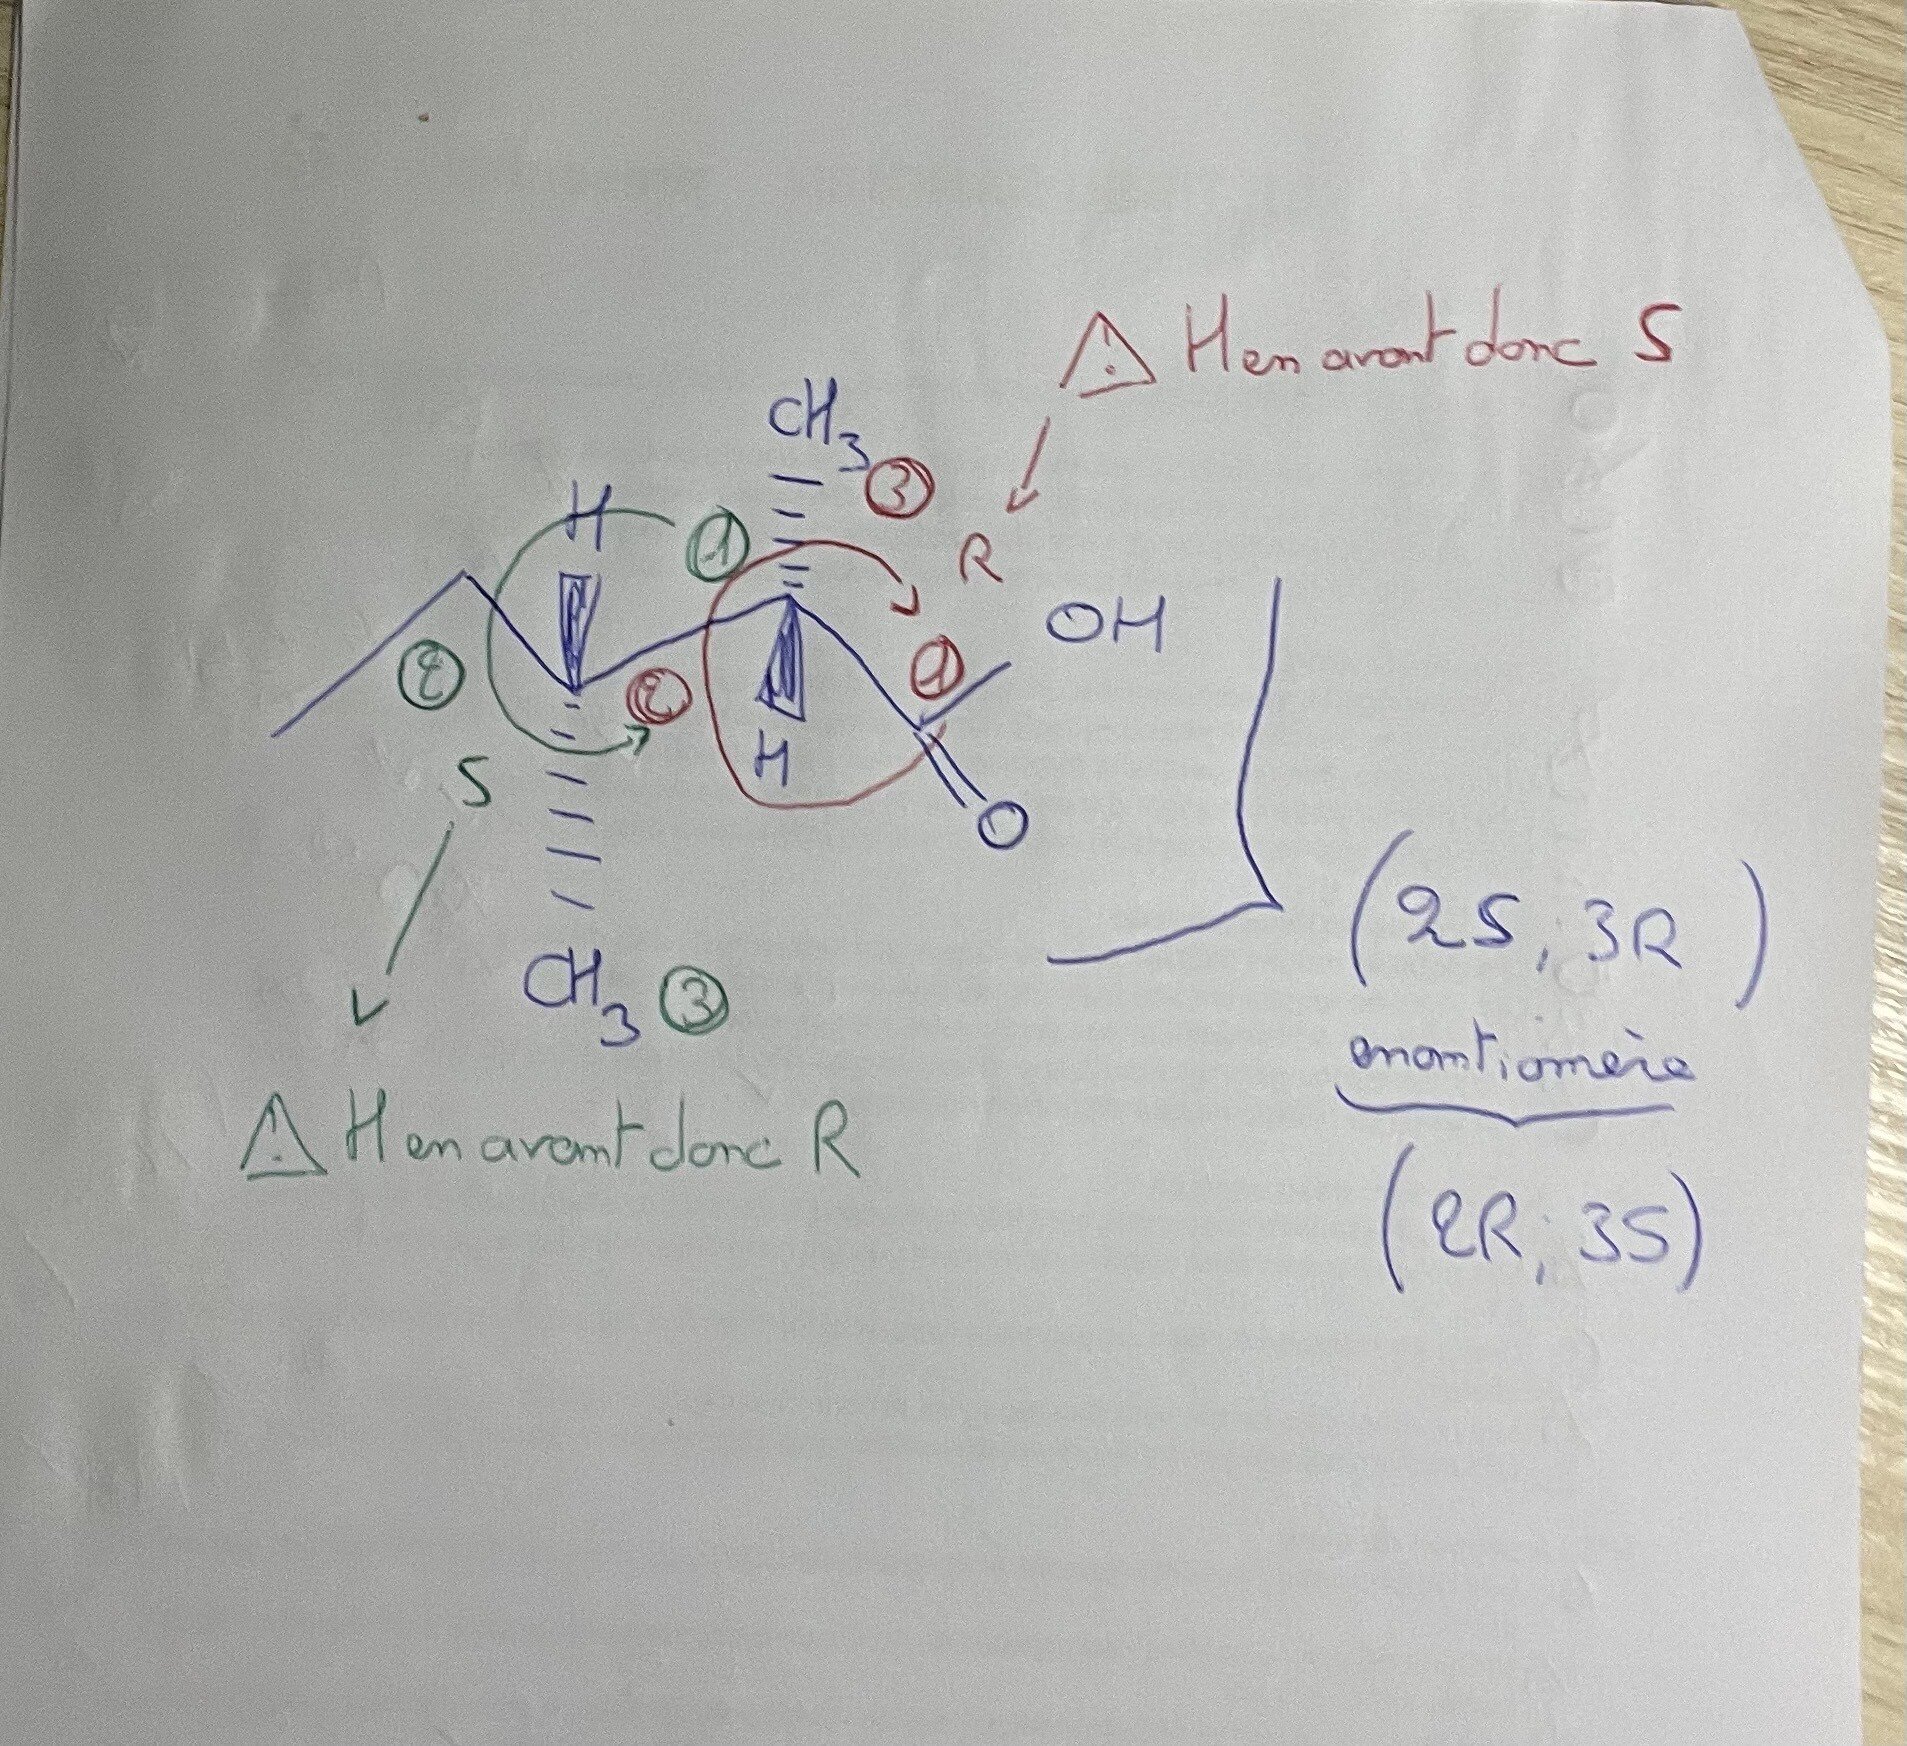 ⚠ H en avant donc S
CH3 ③
H ① R
OH
② ② ①
S H
O
CH3 ③
(2S, 3R)
enantiomère
⚠ H en avant donc R
(2R, 3S)